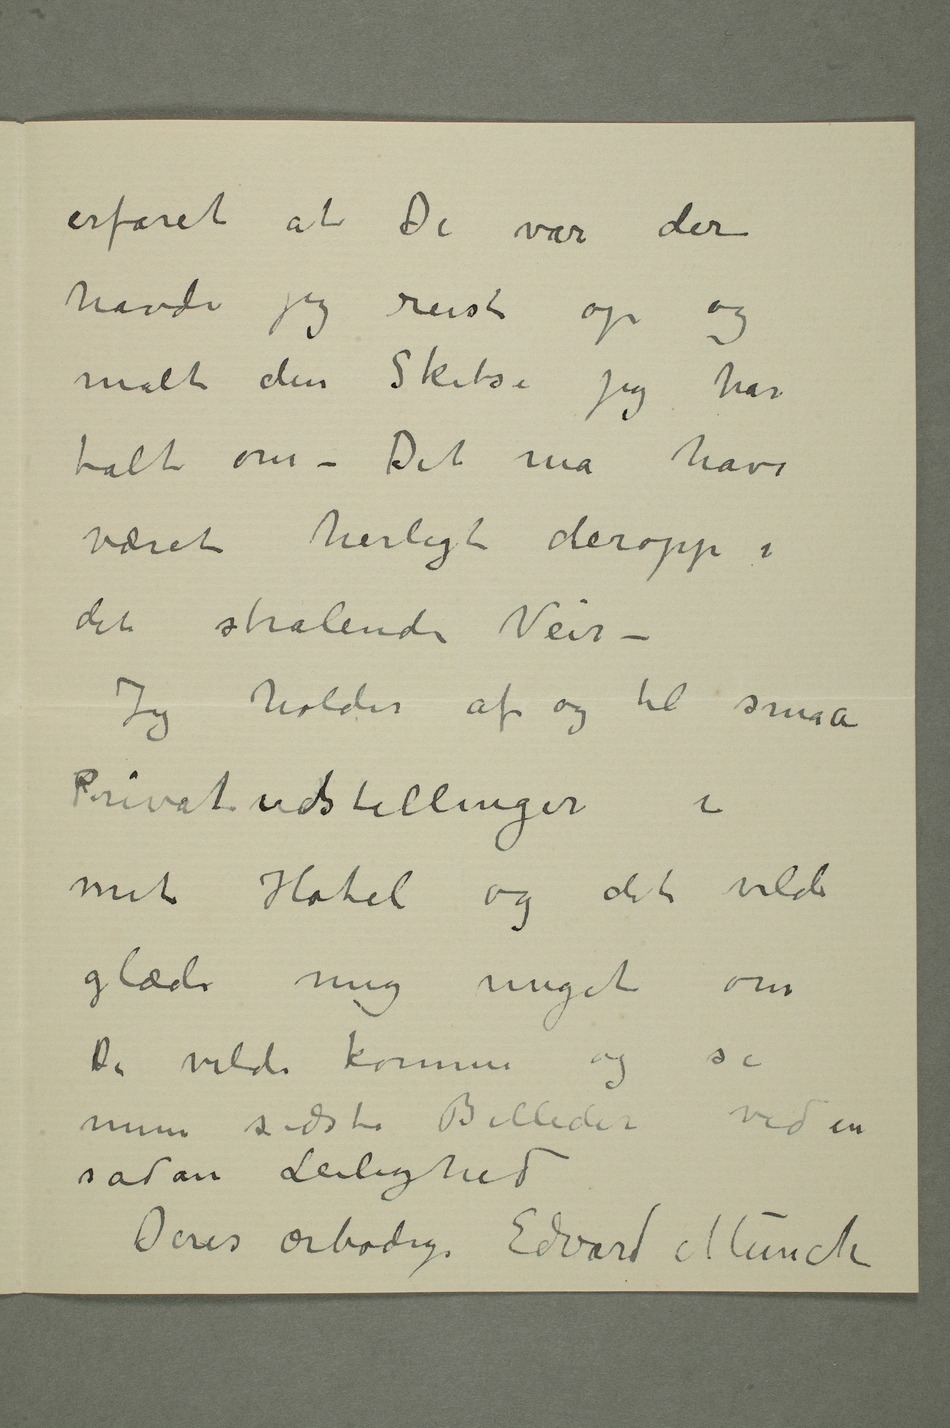 erfaret at De var der
havde jeg reist op og
malt den Skitse jeg har
talt om – Det må have
været herligt deroppe i
det strålende Veir –
Jeg holder af og til smaa
Privatudstillinger i
mit Hotel og det vilde
glæde mig meget om
De vilde komme og se
mine sidste Billeder ved en
sådan Leilighed
Deres ærbødige Edvard Munch